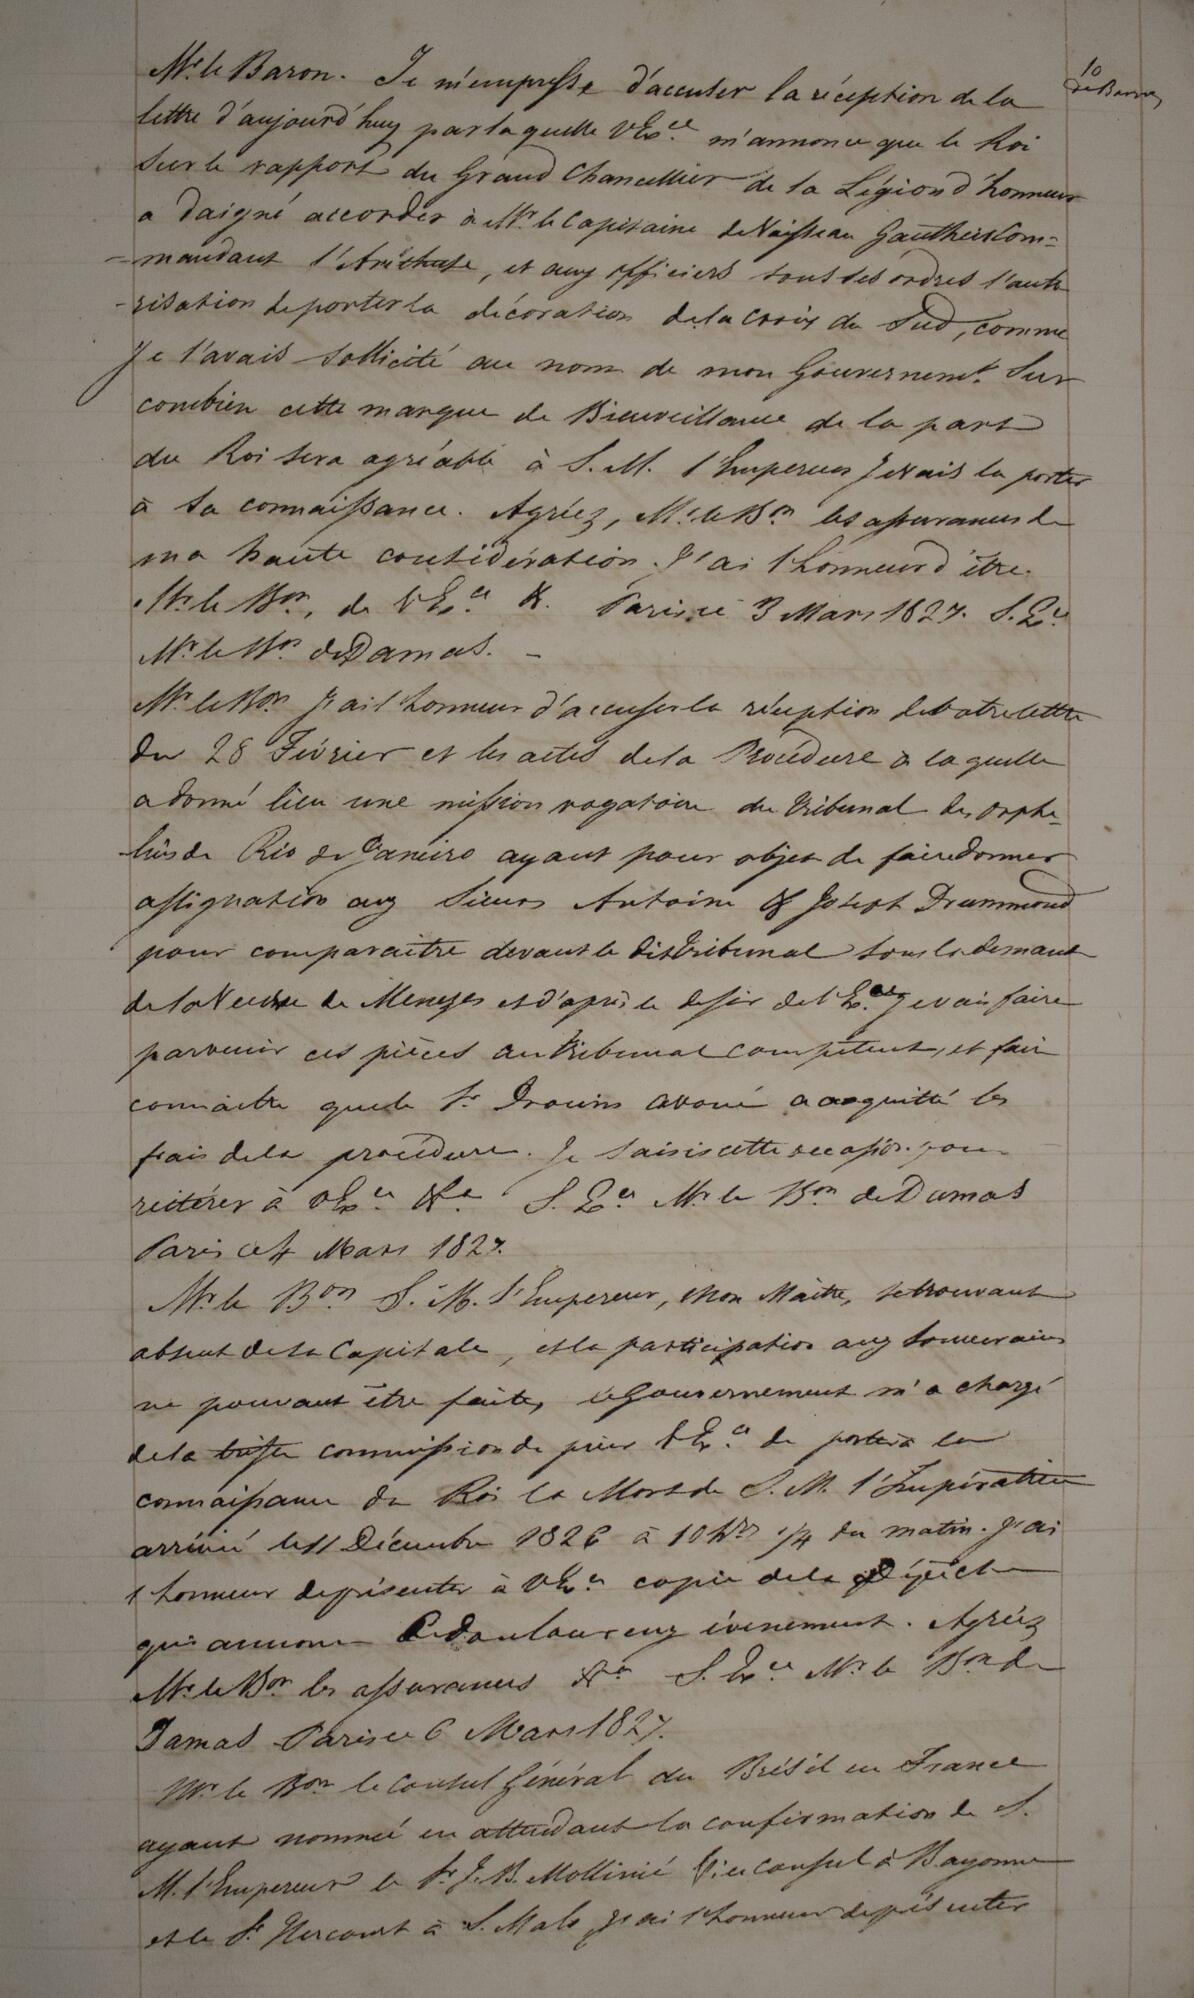 10
de Barros
Mr. le Baron. Je m'empresse d'accuser la réception de la
lettre d'aujourd'huy par laquelle VExce. m'annonce que le Roi
sur le rapport du Grand Chancellier de la Légion d'honneur
a daigné accorder à Mr. le Capitaine de Vaisseau Gauthier Com=
=mandant l'Aréthuse, et aux officiers sous ses ordres l'auto
-risation de porter la décoration de la croix du Sud, comme
Je l'avais sollicité au nom de mon Gouvernemt. Sur
combien cette marque de Bienveillance de la part
du Roi sera agréable à S. M. l'Empereur Je vais la porter
à sa connaissance. Agréez, Mr. le Bon les assurances de
ma haute considération. J'ai l'honneur d'être.
Mr. le Bon, de VExce &. Paris ce 3 Mars 1827. S. Ece
Mr. le Bn. de Damas. -
Mr. le Bon J'ai l'honneur d'accuser la réception de votre lettre
du 28 Février et les actes de la Procédure à laquelle
a donné lieu une mission rogatoire du tribunal des orphe-
-lins de Rio de Janeiro ayant pour objet de faire donner
assignation aux Sieurs Antoine & Joseph Drummond
pour comparaitre devant le dit tribunal sous la demande
de la Veuve de Menezes et d'après le desir de VEce. Je vais faire
parvenir ces pièces au tribunal compétent, et faire
connaitre que le Sr. Drouin avoué a acquitté les
frais de la procédure. Je saisis cette occasion pour
réitérer à VExce &a S. Ece Mr. le Bon de Damas
Paris ce 4 Mars 1827.
Mr. le Bon S. M. l'Empereur, mon Maitre, se trouvant
absent de sa Capitale, et la participation aux Souverains
ne pouvant être faite, le Gouvernement m'a chargé
de la triste commission de prier VExce de porter à la
connaissance du Roi la Mort de S. M. l'Impératrice
arrivée le 11 Décembre 1826 à 10 hres 1/4 du matin. J'ai
l'honneur de présenter à VExce copie de la Dépêche
qui annonce ce douloureux événement. Agréez
Mr. le Bon les assurances &a S. Exce Mr. le Bon de
Damas Paris ce 6 Mars 1827.
Mr. le Bon le Consul Général du Brésil en France
ayant nommé en attendant la confirmation de S.
M. l'Empereur le Sr. J. B. Mollinié Vice Consul à Bayonne
et le Sr. Hercourt à S. Malo J'ai l'honneur de présenter